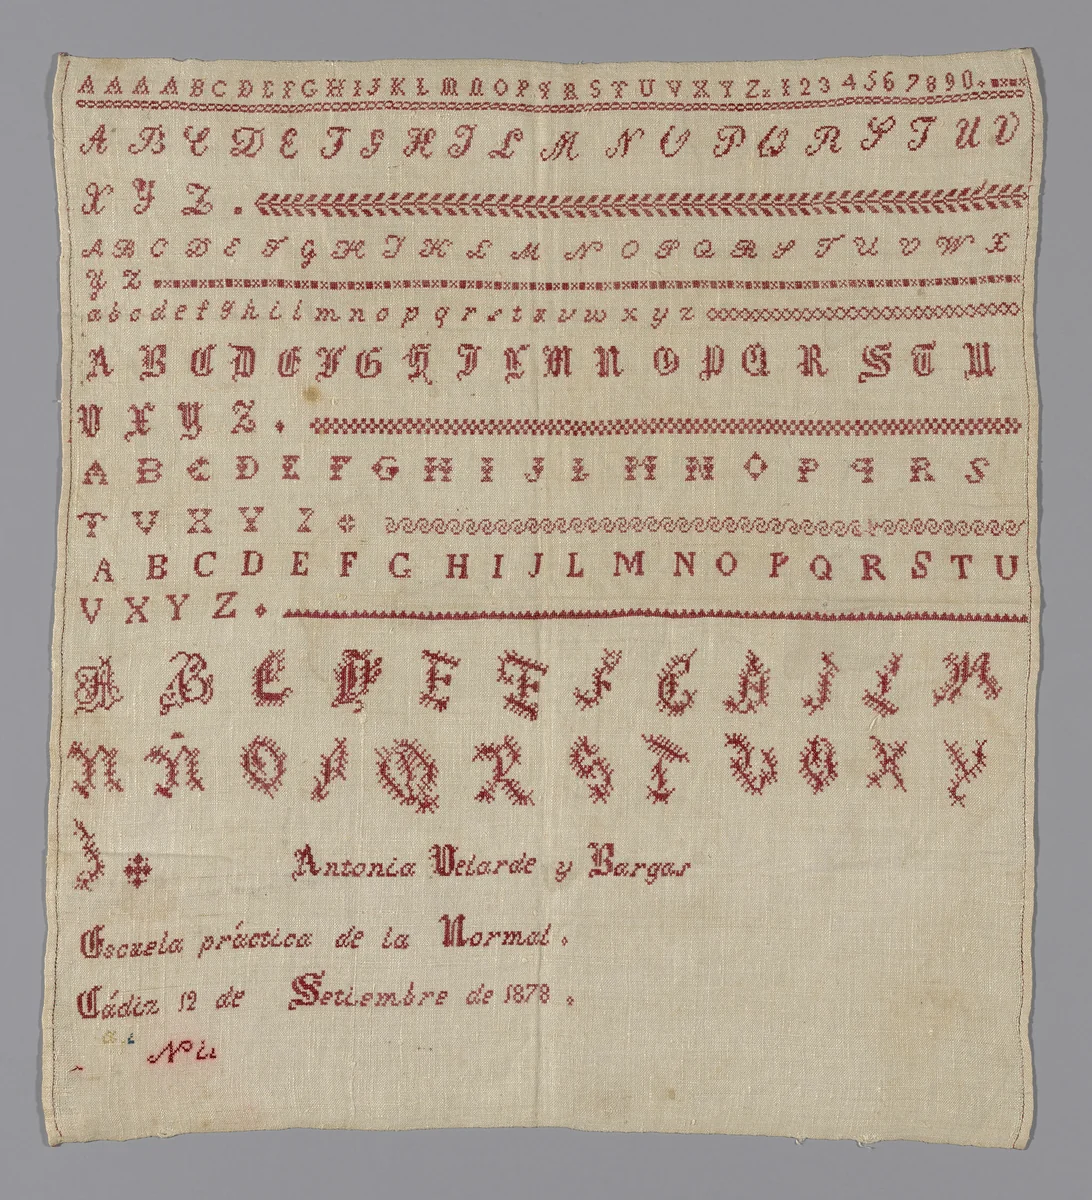 A A A A B C D E F G H I J K L M N O P Q R S T U V X Y Z 1 2 3 4 5 6 7 8 9 0
A B C D E F G H I L M N O P Q R S T U V
X Y Z .
A B C D E F G H I K L M N O P Q R S T U V W X
Y Z
a b c d e f g h i l m n o p q r s t u v w x y z
A B C D E F G H I L M N O P Q R S T U
V X Y Z .
A B C D E F G H I J L M N O P Q R S
T V X Y Z
A B C D E F G H I J L M N O P Q R S T U
V X Y Z .
A B C D E F G A J L M
N Ñ O P Q R S T V O X Y
Antonia Velarde y Bargas
Escuela práctica de la Normal .
Cádiz 12 de Setiembre de 1878 .